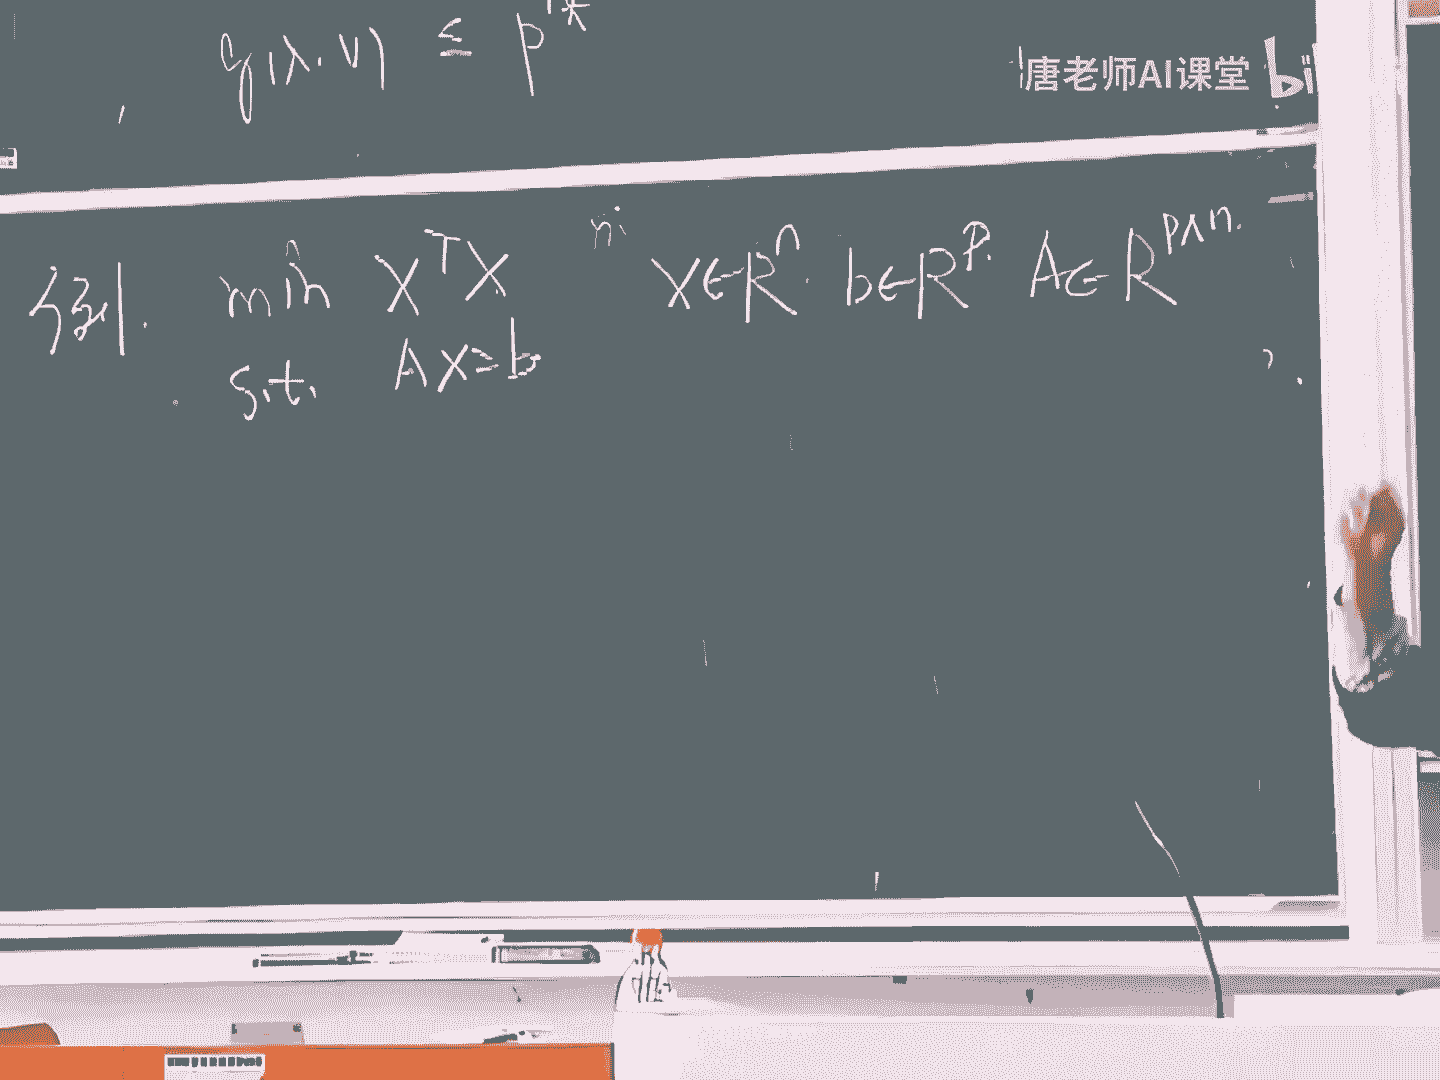 g(λ.ν) ≤ p*
唐老师AI课堂 bi
例1. min X^T X X∈R^n. b∈R^p. A∈R^{p×n}.
s.t. AX=b